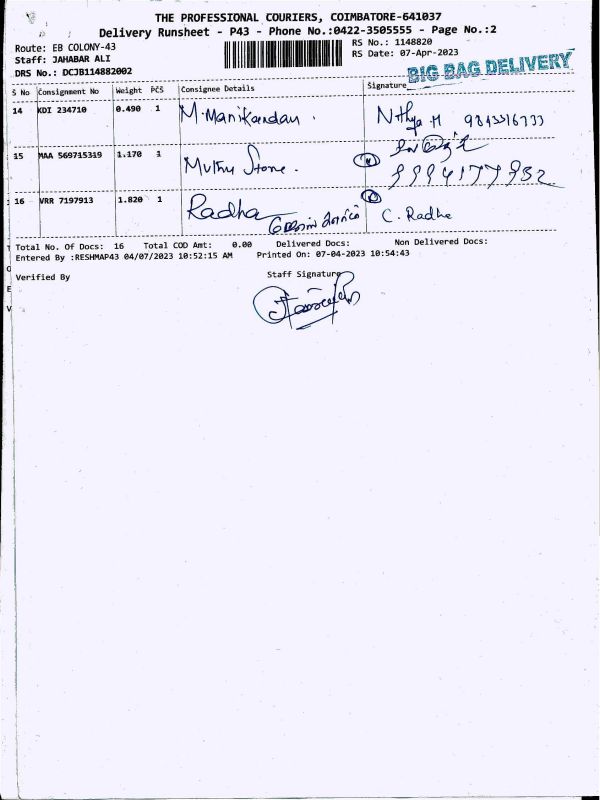 THE PROFESSIONAL COURIERS, COIMBATORE-641037
Delivery Runsheet - P43 - Phone No.:0422-3505555 - Page No.:2
Route: EB COLONY-43
RS No.: 1148820
Staff: JAHABAR ALI
RS Date: 07-Apr-2023
DRS No.: DCJB114882002
BIG BAG DELIVERY
S No Consignment No Weight PCS Consignee Details Signature
14 KDI 234710 0.490 1 M. Manikandan.
15 MAA 569715319 1.170 1 Muthu Stone.
16 VRR 7197913 1.820 1 Radha C. Radha
Total No. Of Docs: 16 Total COD Amt: 0.00 Delivered Docs: Non Delivered Docs:
Entered By :RESHMAP43 04/07/2023 10:52:15 AM Printed On: 07-04-2023 10:54:43
Verified By
Staff Signature